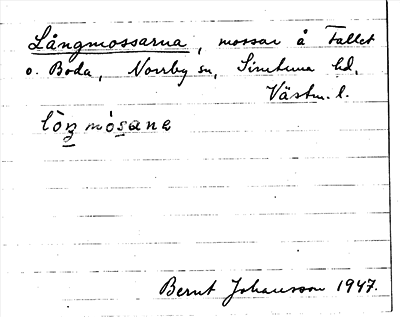 Långmossarna, mossar å Fallet
o. Boda, Norrby sn, Simtuna hd,
Västm. l.
Bernt Johansson 1947.